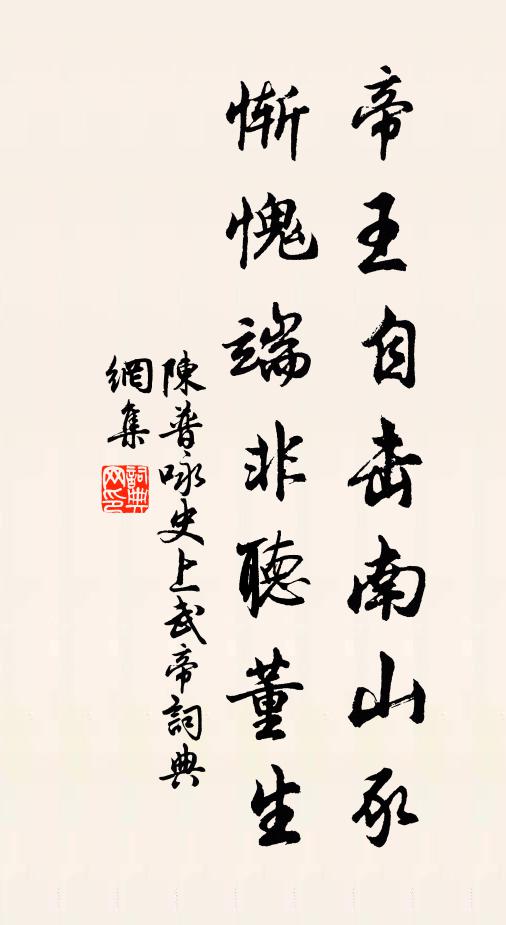 帝王自击南山豕
慚愧端非聽董生
陳普咏史上武帝詞典
網集
詞典
网印